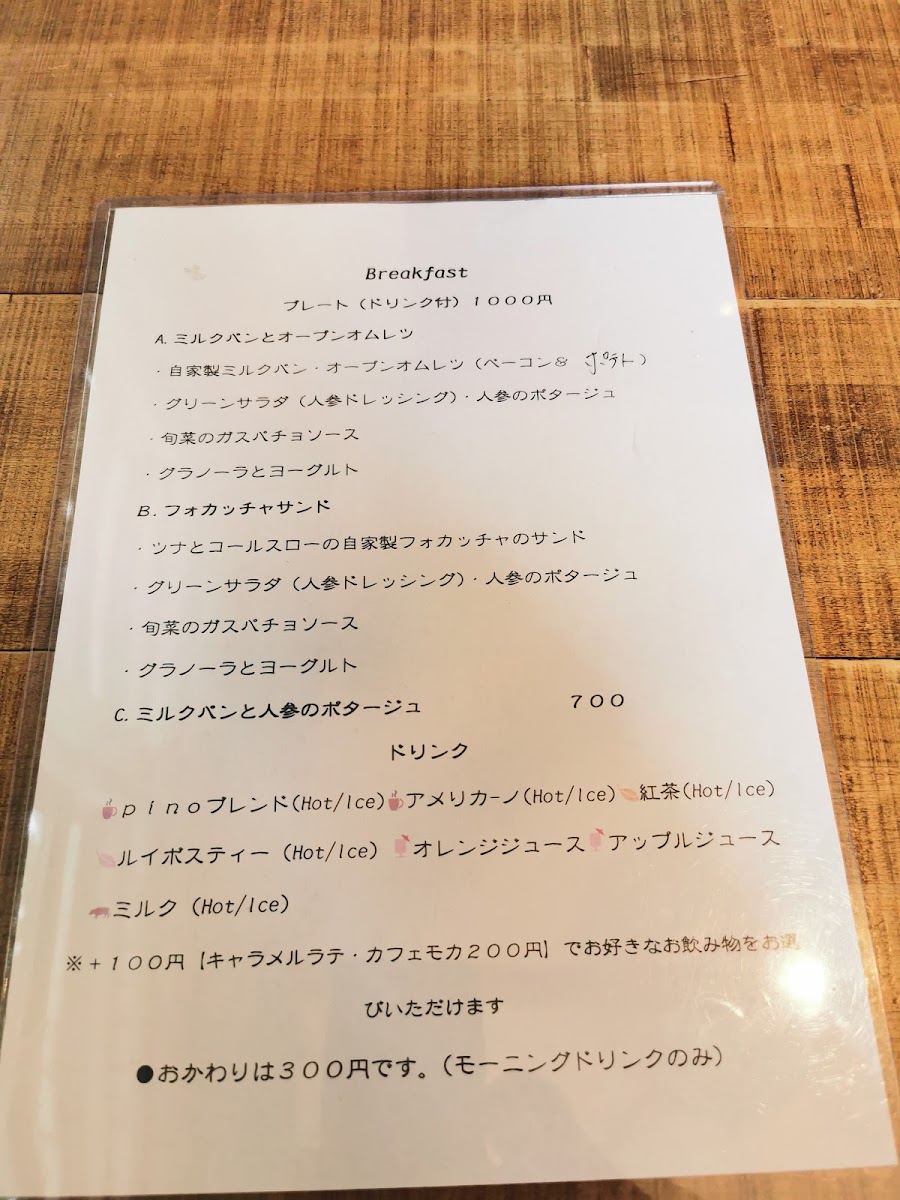 Breakfast
プレート（ドリンク付）１０００円
A.ミルクパンとオーブンオムレツ
・自家製ミルクパン・オーブンオムレツ（ベーコン＆ ポテト）
・グリーンサラダ（人参ドレッシング）・人参のポタージュ
・旬菜のガスパチョソース
・グラノーラとヨーグルト
B.フォカッチャサンド
・ツナとコールスローの自家製フォカッチャのサンド
・グリーンサラダ（人参ドレッシング）・人参のポタージュ
・旬菜のガスパチョソース
・グラノーラとヨーグルト
C.ミルクパンと人参のポタージュ ７００
ドリンク
ｐｉｎｏブレンド(Hot/Ice) アメリカｰノ(Hot/Ice) 紅茶(Hot/Ice)
ルイボスティー (Hot/Ice) オレンジジュース アップルジュース
ミルク (Hot/Ice)
※＋１００円【キャラメルラテ・カフェモカ２００円】でお好きなお飲み物をお選
びいただけます
●おかわりは３００円です。（モーニングドリンクのみ）